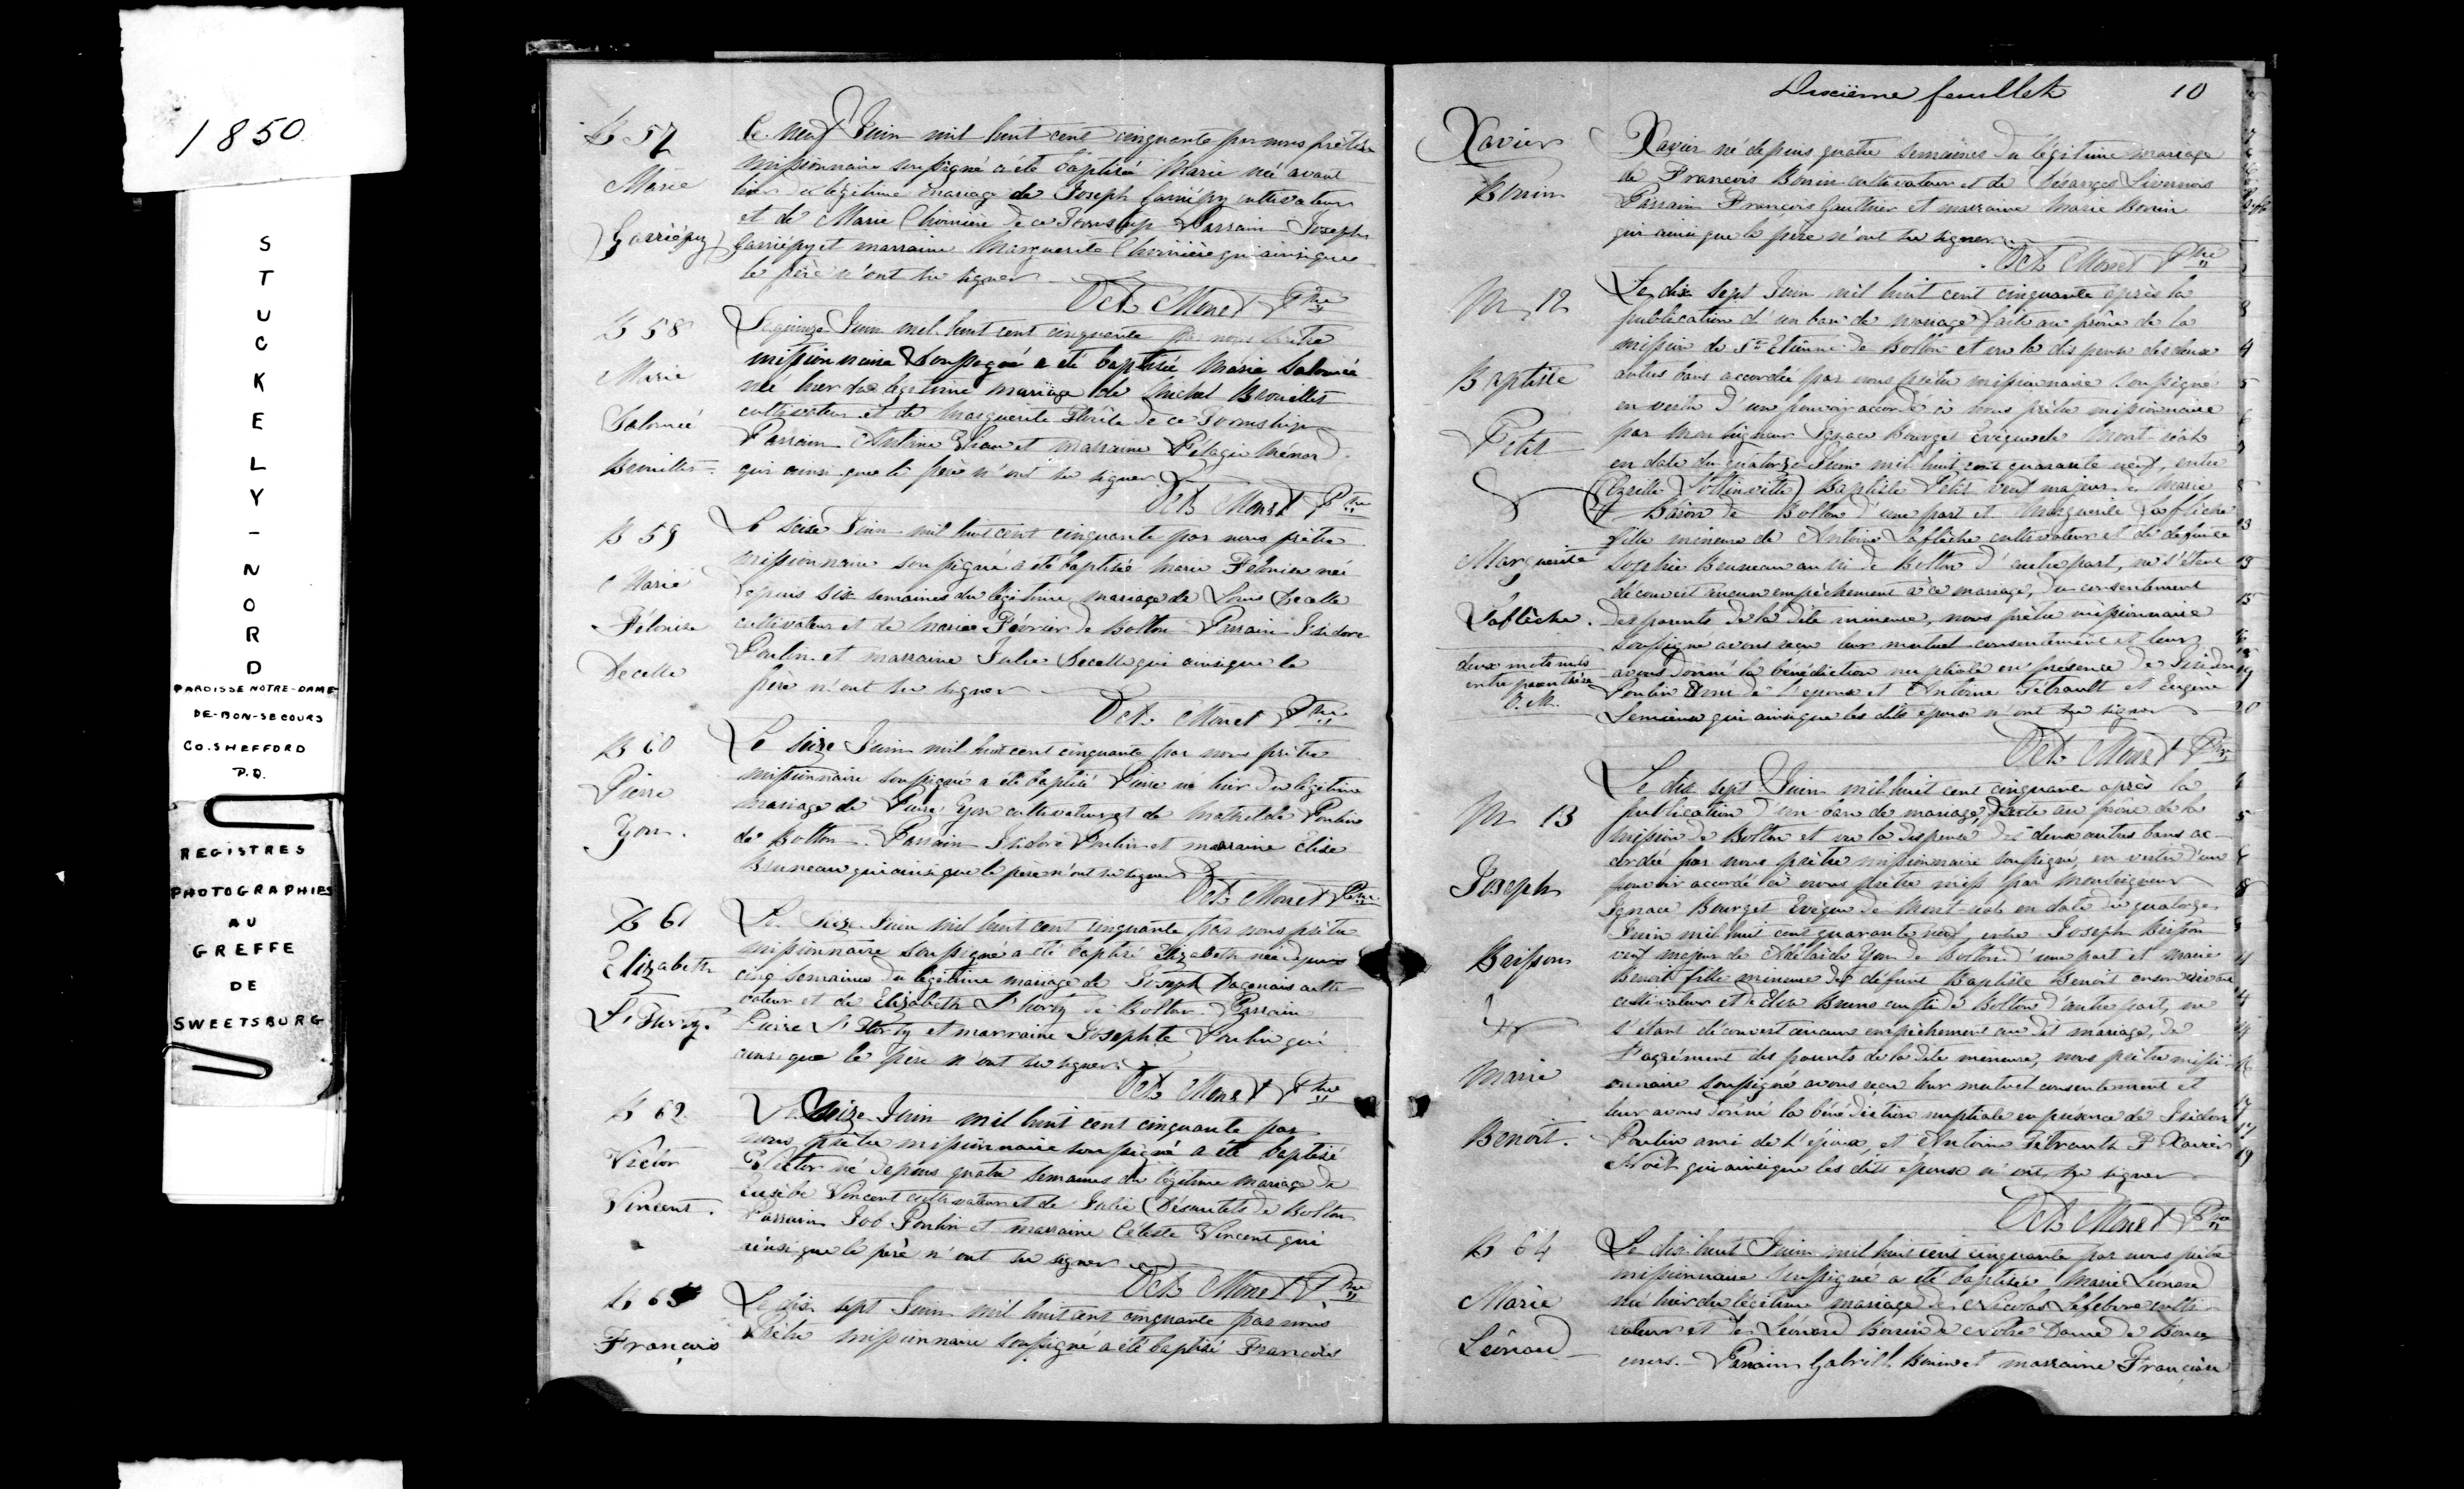 1850
S
T
U
C
K
E
L
Y
-
N
O
R
D
PAROISSE NOTRE-DAME
DE-BON-SECOURS
CO. SHEFFORD
P.Q.
REGISTRES
PHOTOGRAPHIES
AU
GREFFE
DE
SWEETSBURG
B 57
Marie
Garriépy
Le neuf Juin mil huit cent cinquante par nous prêtre
missionnaire soussigné a été baptisé Marie né avant
hier du légitime mariage de Joseph Garriépy cultivateur
et de Marie Chorinière de ce Township Parrain Joseph
Garriépy et marraine Marguerite qui ainsi que
le père n'ont su signer
Oct. Monet Ptre
B 58
Marie
Salomée
Brouillet
Le quinze Juin mil huit cent cinquante par nous prêtre
missionnaire soussigné a été baptisée Marie Salomée
née hier du légitime mariage de Michel Brouillet
cultivateur et de Marguerite de ce Township
Parrain Antoine et marraine Pélagie Ménard
qui ainsi que le père n'ont su signer
Oct. Monet Ptre
B 59
Marie
Félonise
Decelle
Le seise Juin mil huit cent cinquante par nous prêtre
missionnaire soussigné a été baptisée Marie Félonise née
depuis six semaines du légitime mariage de Louis Decelle
cultivateur et de Marie Février de Bolton Parrain Isidore
Poulin et marraine Julie Decelle qui ainsi que le
père n'ont su signer
Oct. Monet Ptre
B 60
Pierre
Yon.
Le seize Juin mil huit cent cinquante par nous prêtre
missionnaire soussigné a été baptisé Pierre né hier du légitime
mariage de Pierre Yon cultivateur et de Mathilde Poulin
de Bolton. Parrain Isidore Poulin et marraine Elise
Bruneau qui ainsi que le père n'ont su signer
Oct. Monet Ptre
B 61
Elizabeth
Le Seize Juin mil huit cent cinquante par nous prêtre
missionnaire soussigné a été baptisé Elizabeth née depuis
cinq semaines du légitime mariage de Joseph Dagenais culti
vateur et de Elizabeth de Bolton. Parrain
Pierre et marraine Josephte Poulin qui
ainsi que le père n'ont su signer.
Oct. Monet Ptre
B 62
Victor
Vincent.
Le Seize Juin mil huit cent cinquante par
nous prêtre missionnaire soussigné a été baptisé
Victor né depuis quatre semaines du légitime mariage de
Eusèbe Vincent cultivateur et de Julie Désautels de Bolton
Parrain Job Poulin et marraine Céleste Vincent qui
ainsi que le père n'ont su signer
Oct. Monet Ptre
B 63
François
Le dix sept Juin mil huit cent cinquante par nous
Prêtre missionnaire soussigné a été baptisé François
Dixième feuillet 10
Xavier
Bonin
Xavier né depuis quatre semaines du légitime mariage
de François Bonin cultivateur et de Désanges Livernois
Parrain François Gauthier et marraine Marie Bonin
qui ainsi que le père n'ont su signer
Oct. Monet Ptre
M 12
Baptiste
Petit
&
Marguerite
Laflèche.
deux mots nuls
entre parenthèse
O. M.
Le dix sept Juin mil huit cent cinquante après la
publication d'un ban de mariage faite au prône de la
mission de St Etienne de Bolton et vu la dispense des deux
autres bans accordée par nous prêtre missionnaire soussigné
en vertu d'un pouvoir accordé à nous prêtre missionnaire
par Monseigneur Ignace Bourget Evêque de Mont-réal
en date du quatorze Juin mil huit cent quarante neuf, entre
Baptiste Petit veuf majeur de Marie
de Bolton d'une part et Marguerite Laflèche
fille mineure de Antoine Laflèche cultivateur et de défunte
Sophie Bruneau aussi de Bolton d'autre part, ne s'étant
découvert aucun empêchement à ce mariage, du consentement
des parents de la dite mineure, nous prêtre missionnaire
soussigné avons reçu leur mutuel consentement et leur
avons donné la bénédiction nuptiale en présence de Isidore
Poulin ami de l'époux et Antoine Tétrault et Eugène
Lemieux qui ainsi que les dits époux n'ont su signer
Oct. Monet Ptre
M 13
Joseph
Brisson
&
Marie
Benoit.
Le dix sept Juin mil huit cent cinquante après la
publication d'un ban de mariage, faite au prône de la
mission de Bolton et vu la dispense de deux autres bans ac-
cordée par nous prêtre missionnaire soussigné, en vertu d'un
pouvoir accordé à nous prêtre miss par Monseigneur
Ignace Bourget Evêque de Mont-réal en date du quatorze
Juin mil huit cent quarante neuf, entre Joseph Brisson
veuf majeur de Adélaïde Yon de Bolton d'une part et Marie
Benoit fille mineure de défunt Baptiste Benoit en son vivant
cultivateur et de aussi de Bolton d'autre part, ne
s'étant découvert aucun empêchement au dit mariage, de
l'agrément des parents de la dite mineure, nous prêtre missi-
onnaire soussigné avons reçu leur mutuel consentement et
leur avons donné la bénédiction nuptiale en présence de Isidore
Poulin ami de l'époux, et Antoine Tétrault F Xavier
Noël qui ainsi que les dits époux n'ont su signer
Oct. Monet Ptre
B 64
Marie
Léonard
Le dix huit Juin mil huit cent cinquante par nous prêtre
missionnaire soussigné a été baptisée Marie Léonard
née hier du légitime mariage de Nicolas Lefebvre culti-
vateur et de Léonard Bonin de Notre Dame de Bonse
cours. Parrain Gabriel Bonin et marraine Françoise